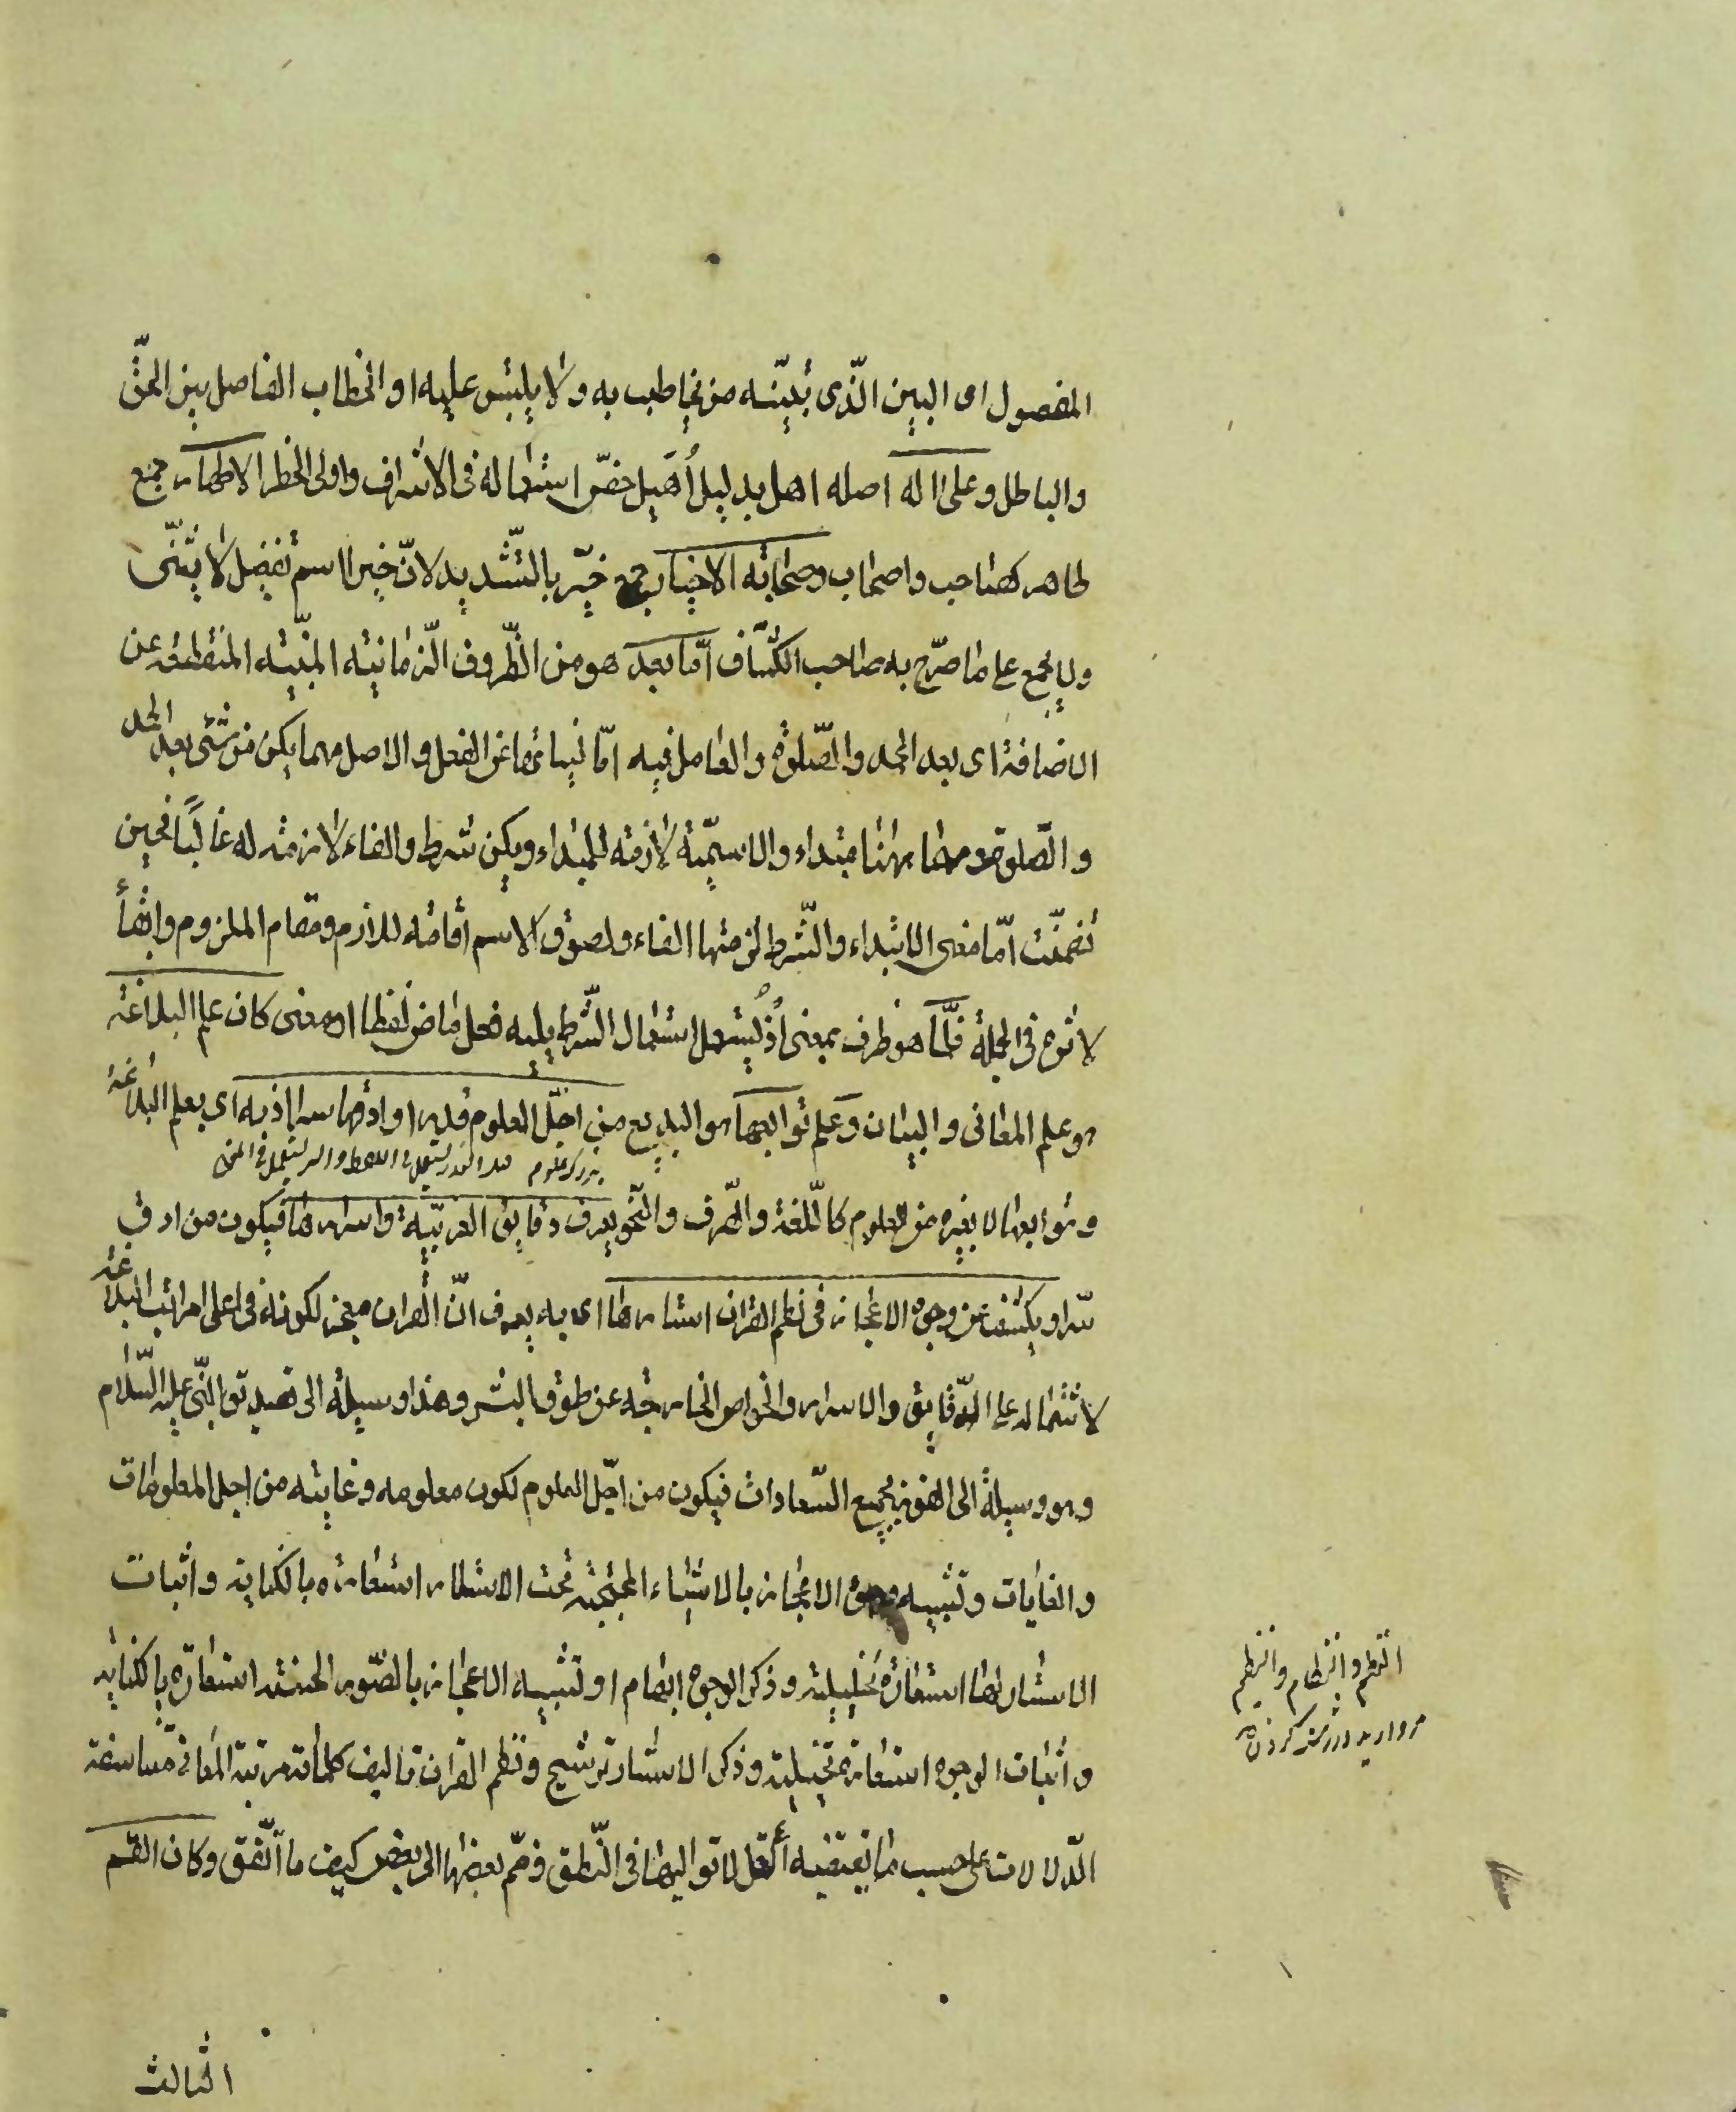 المفصول اى البين الّذى يتبيّنه من يخاطب به ولا يلتبس عليه او الخطاب الفاصل بين الحقّ
والباطل وعلى اله اصله اهل بدليل أُهَيل خصّ استعماله فى الاشراف واولى الخطر الاطهار جمع
طاهر كصاحب واصحاب وصحابته الاخيار جمع خيّر بالتّشديد لانّ خيرا اسم تفضيل لا يثنّى
ولا يجمع على ما صرّح به صاحب الكشّاف امّا بعد هو من الظّروف الزّمانيّة المبنيّة المنقطعة عن
الاضافة اى بعد الحمد والصّلوة والعامل فيه امّا لنيابتها عن الفعل والاصل مهما يكن من شئ بعد الحمد
والصّلوة ومهما ههنا مبتداء والاسميّة لازمة للمبتداء ويكن شرط والفاء لازمة له غالبًا فحين
تضمّنت امّا معنى الابتداء والشّرط لزمتها الفاء ولصوق الاسم اقامة للازم مقام الملزوم وابقاءً
لاثره فى الجملة فلمّا هو ظرف بمعنى اذ يستعمل استعمال الشّرط يليه فعل ماض لفظا او معنى كان علم البلاغة
هو علم المعانى والبيان وعلم توابعها هو البديع من اجلّ العلوم قدرا وادقّها سرا اذ به اى بعلم البلاغة
وتوابعها لا بغيره من العلوم كاللّغة والصّرف والنّحو يعرف دقايق العربيّة واسرارها فيكون من ادق
سّرا ويكشف عن وجوه الاعجاز فى نظم القران استارها اى به يعرف انّ القران معجز لكونه فى اعلى مراتب البلاغة
لاشتماله على الدّقايق والاسرار والخواص الخارجة عن طوق البشر وهذا وسيلة الى تصديق النّبى عليه السّلام
وهو وسيلة الى الفوز بجميع السّعادات فيكون من اجلّ العلوم لكون معلومه وغايته من اجل المعلومات
والغايات وتشبيه وجوه الاعجاز بالاشياء المحتجبة تحت الاستار استعارة بالكناية واثبات
الاستار لها استعارة تخييلية وذكر الوجوه ايهام او تشبيه الاعجاز بالصّور الحسنة استعارة بالكناية
واثبات الوجوه استعارة تخييلية وذكر الاستار ترشيح ونظم القران تاليف كلماته مرتبة المعانى متناسقة
الدّلالات على حسب ما يقتضيه العقل لا تواليها فى النّطق وضمّ بعضها الى بعض كيف ما اتّفق وكان القسم
النظم والنظام والتنظيم
مرواريد در رشته كردن
الثالث